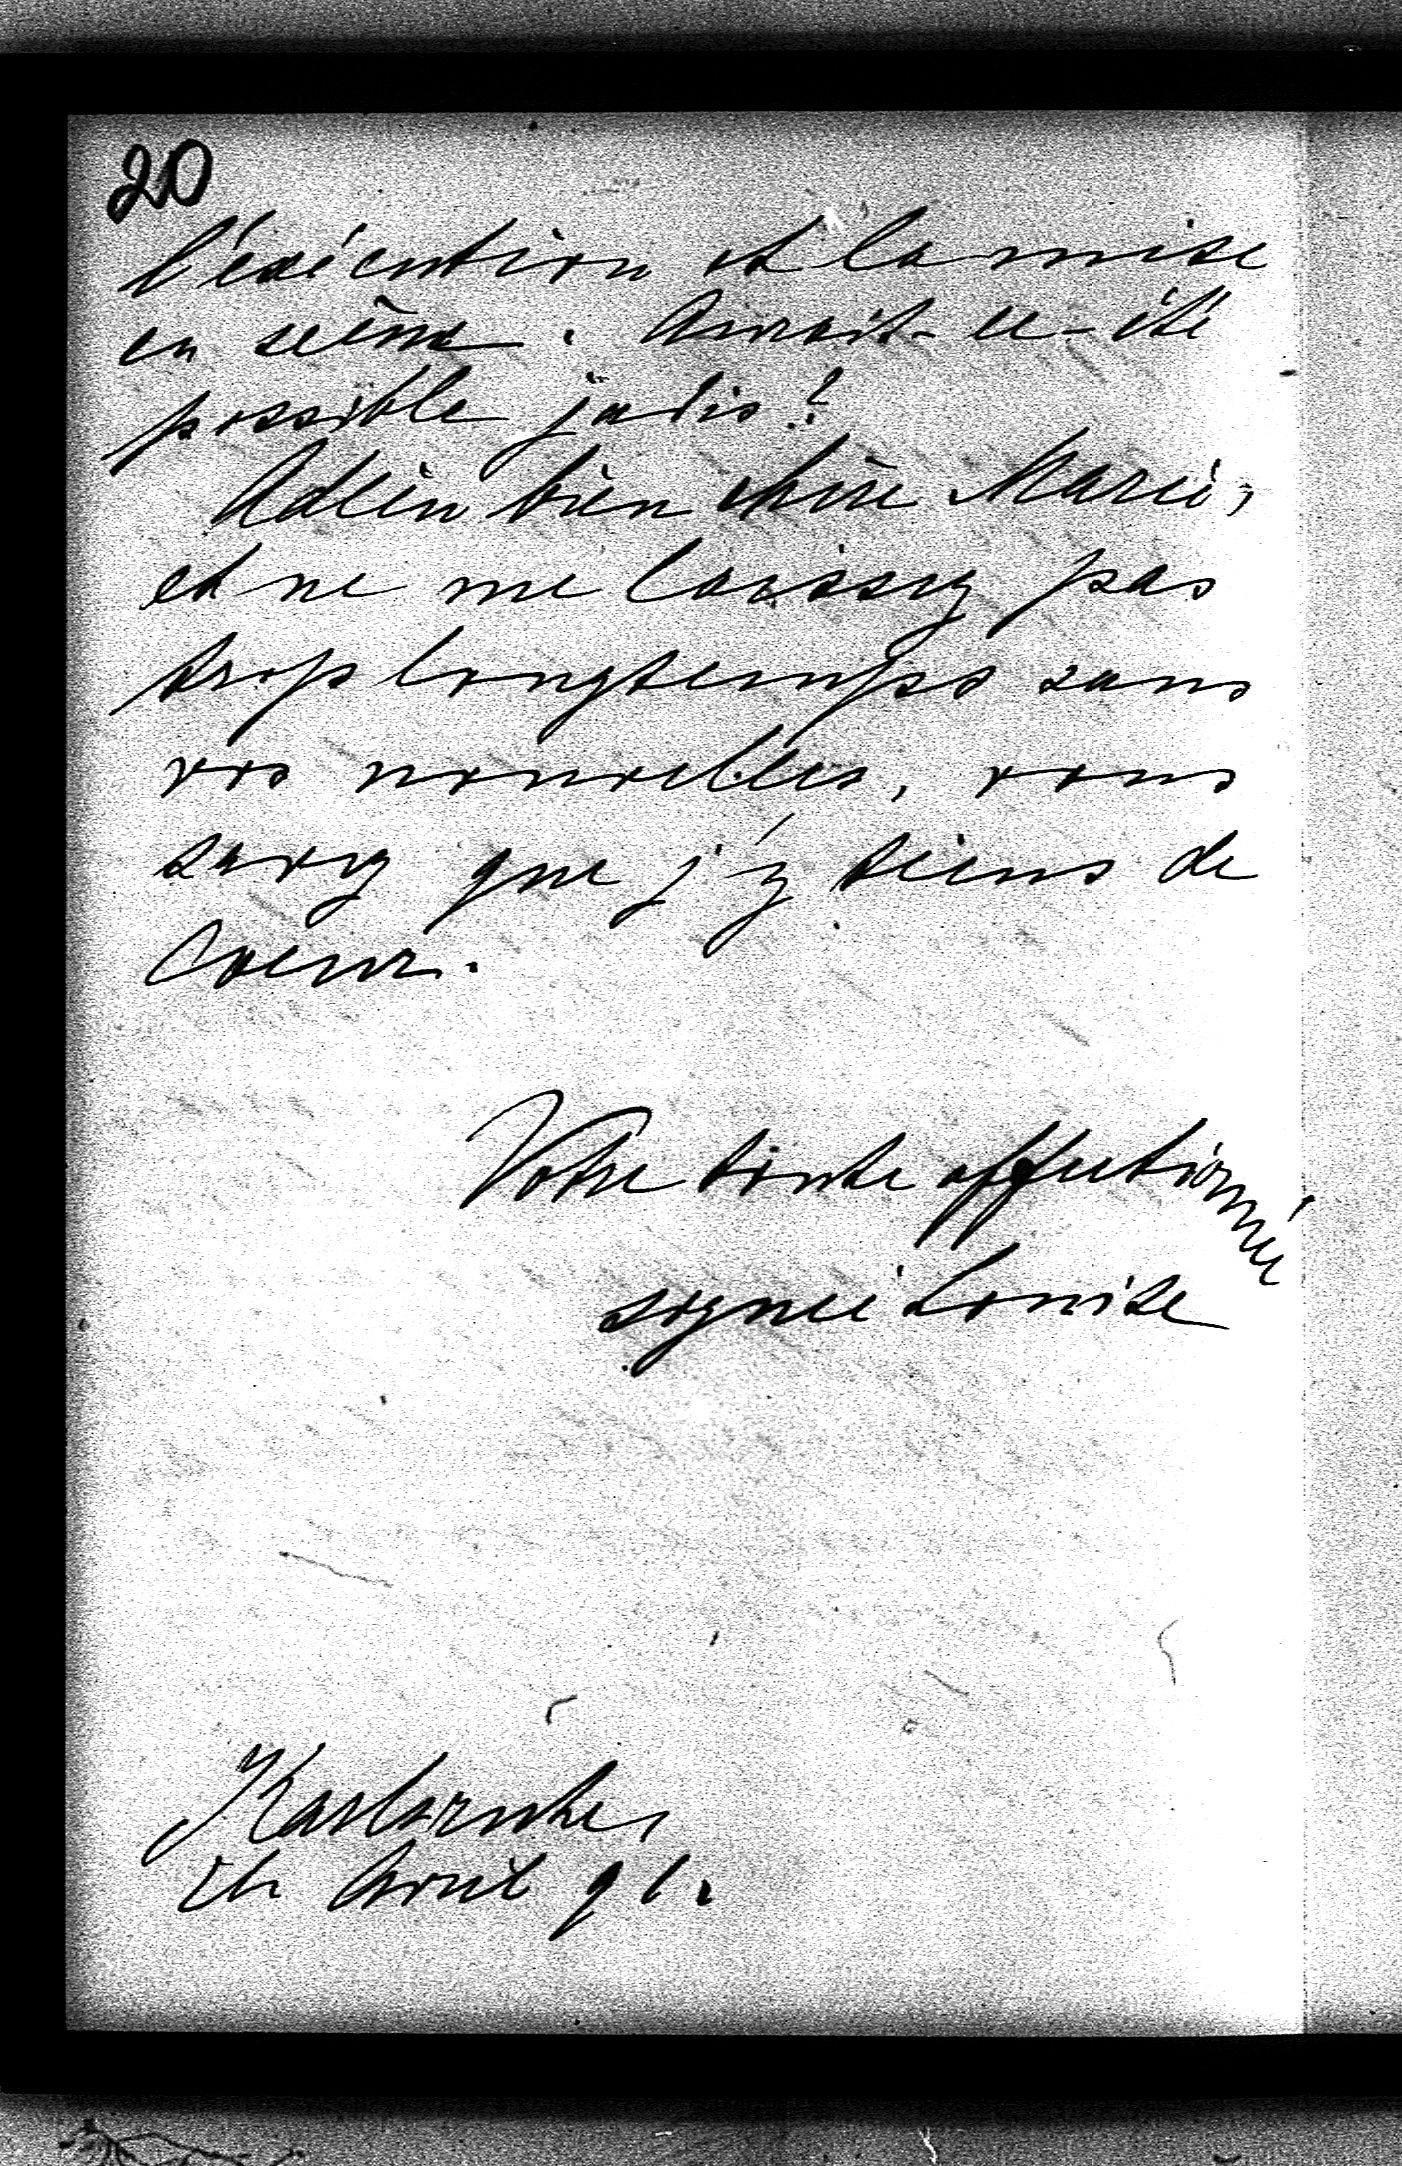 20
l'exécution et la mise
en scène. Aurait-ce-été
possible jadis?
Adieu bien chère Marie,
et ne me laissez pas
trop longtemps sans
vos nouvelles, vous
savez que j'y tiens de
Coeur.
Votre tante affectionnée
signée Louise
Karlsruhe,
Avril 91.